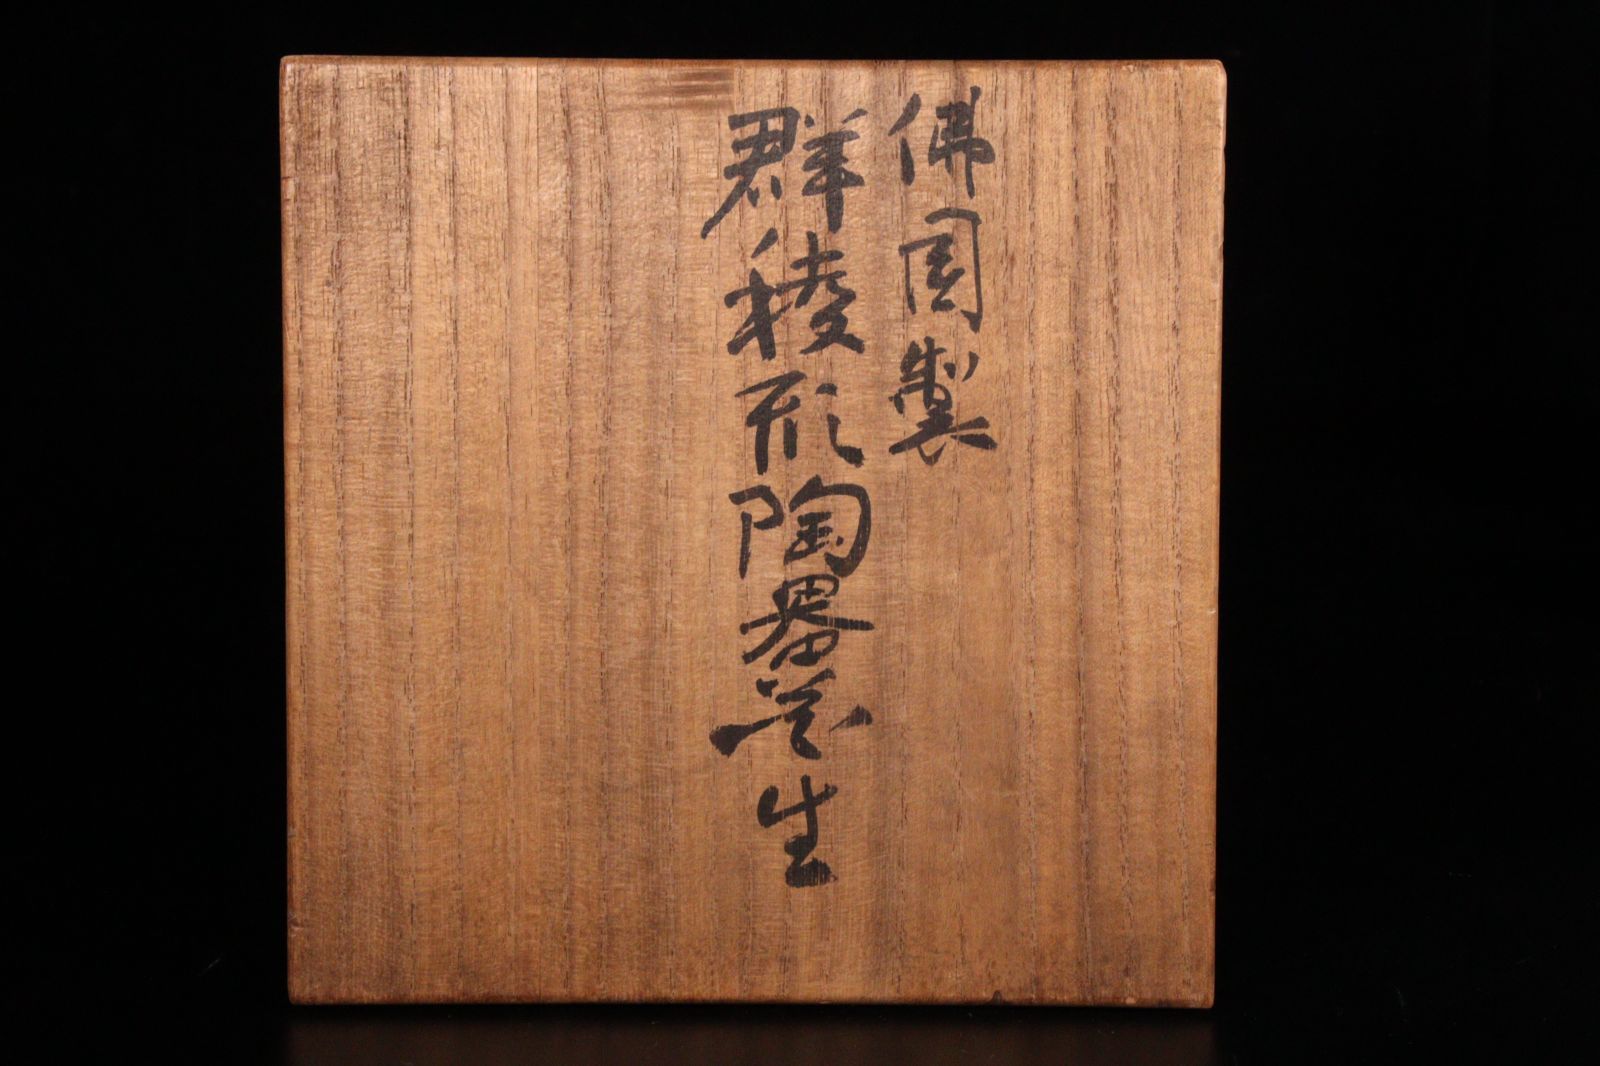 佛国製
群稜形陶器花生